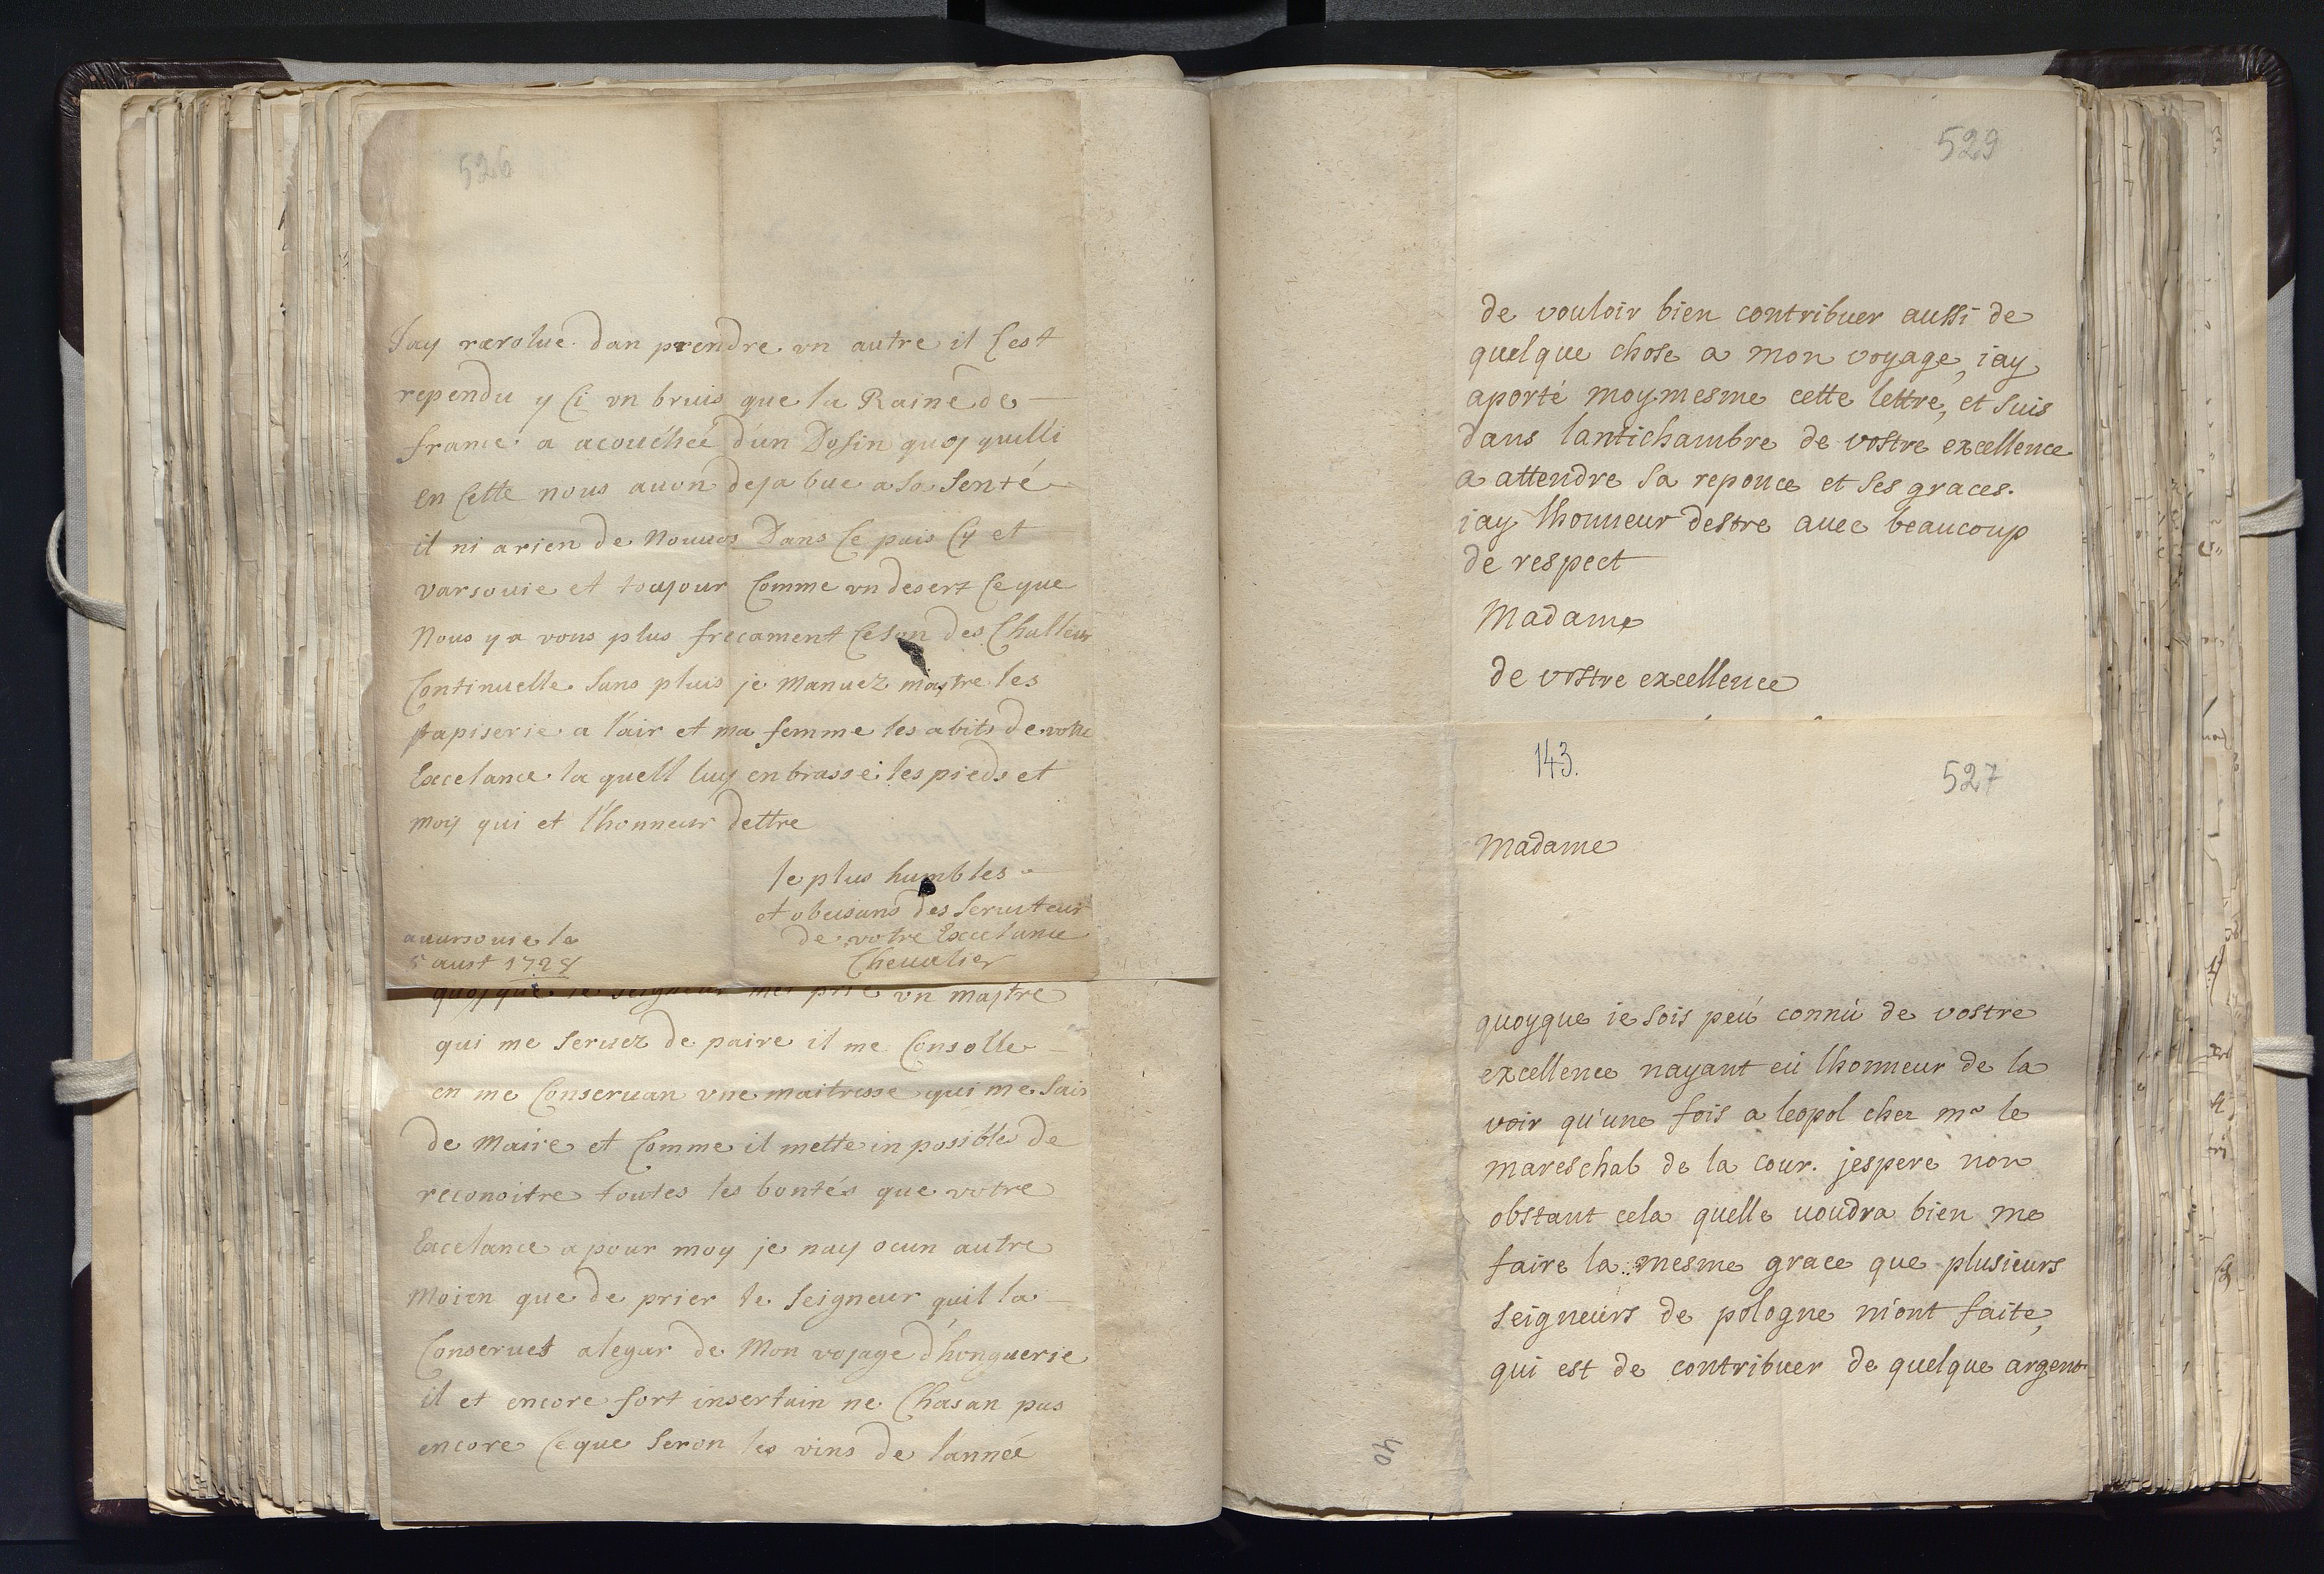 526
Jay raesolue dan prendre un autre il Cest
rependu y Ci un bruis que la Raine de
france a acouéhée d'un Dofin quoy quelli
en Cette nous auon deja bue a sa Senté
il ni a rien de Nouuos Dans Ce puis Cy et
varsouie et toujour Comme un desert Ce que
Nous y a vons plus frecament Ce son des Challeur
Continuelle Sans pluis je Manuez maytre les
tapiserie a l'air et ma femme les abits de votre
Excelance la quell luy enbrasse les pieds et
moy qui et l'honneur dettre
le plus humbles
et obeisans des Seruiteur
de votre Excelance
Cheualier
a uarsouie le
5 aust 1728
quoy que le seigneur mei prie un maytre
qui me Seruez de paire il me Consolle
en me Conseruan une maitresse qui me Sais
de Maire et Comme il mette in posible de
reconoitre toutes les bontés que votre
Excelance a pour moy je nay ocun autre
Moien que de prier le Seigneur quil la
Conserues a legar de Mon voyage d'honguerie
il et encore fort insertain ne Chasan pas
encore Ce que Seron les vins de lannée
529
de vouloir bien contribuer aussi de
quelque chose a mon voyage, iay
aporté moymesme cette lettre, et suis
dans lantichambre de vostre excellence
a attendre sa reponce et ses graces.
iay lhonneur destre auec beaucoup
de respect
Madame
de vostre excellence
143.
527
Madame
quoyque ie sois peú connú de vostre
excellence nayant eú lhonneur de la
voir qu'une fois a leopol chez mr le
mareschal de la cour. jespere non
obstant cela quelle uoudra bien me
faire la mesme grace que plusieurs
seigneurs de pologne m'ont faite,
qui est de contribuer de quelque argent
40